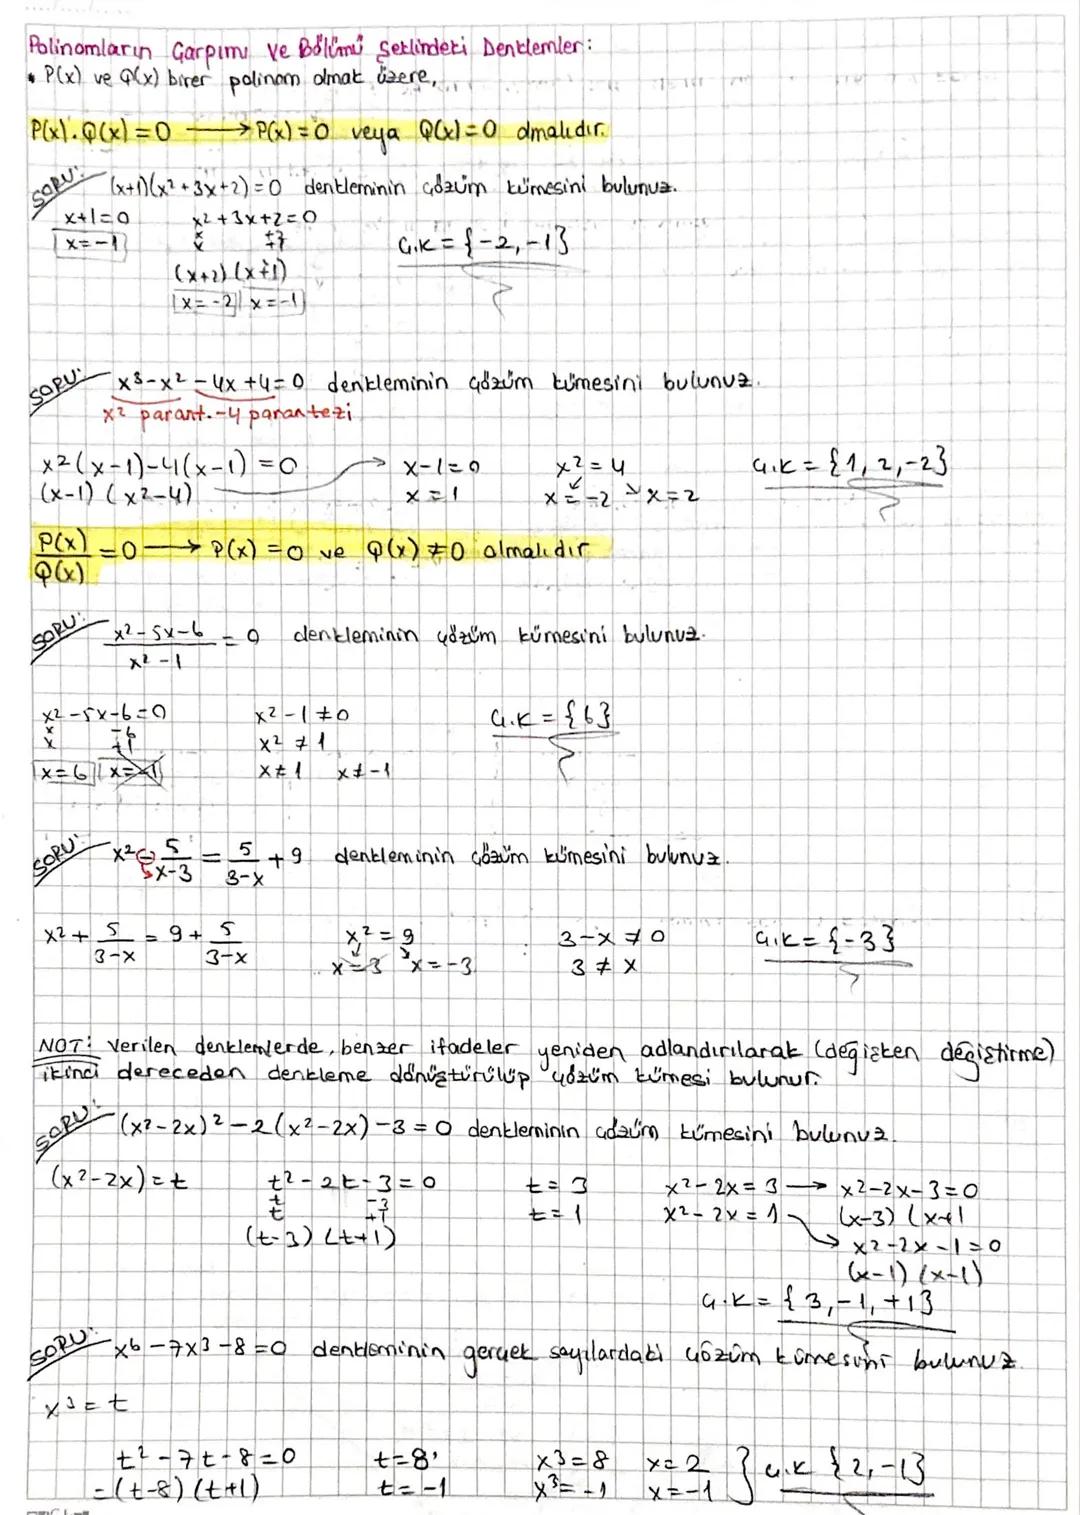 Polinomların Çarpımı ve Bölümü Şeklindeki Denklemler:
• P(x) ve Q(x) birer polinom olmak üzere,
P(x).Q(x)=0 → P(x)=0 veya Q(x)=0 olmalıdır.
SORU: (x+1)(x²+3x+2)=0 denkleminin çözüm kümesini bulunuz.
x+1=0 x²+3x+2=0
x=-1 x +2
x +1
Ç.K={-2,-1}
(x+2)(x+1)
x=-2 x=-1
SORU: x³-x²-4x+4=0 denkleminin çözüm kümesini bulunuz.
x² parant. -4 parantezi
x²(x-1)-4(x-1)=0 → x-1=0 x²=4 Ç.K={1,2,-2}
(x-1)(x²-4) x=1 x=-2 x=2
P(x)/Q(x)=0 → P(x)=0 ve Q(x)≠0 olmalıdır
SORU: x²-5x-6/x²-1 = 0 denkleminin çözüm kümesini bulunuz.
x²-5x-6=0 x²-1≠0 Ç.K={6}
x -6 x²≠1
x +1
x=6 x=-1 x≠1 x≠-1
SORU: x²-5/x-3 = 5/3-x + 9 denkleminin çözüm kümesini bulunuz.
x²+5/3-x = 9+5/3-x x²=9 3-x≠0 Ç.K={-3}
x=3 x=-3 3≠x
NOT: Verilen denklemlerde, benzer ifadeler yeniden adlandırılarak (değişken değiştirme)
ikinci dereceden denkleme dönüştürülüp çözüm kümesi bulunur.
SORU: (x²-2x)²-2(x²-2x)-3=0 denkleminin çözüm kümesini bulunuz.
(x²-2x)=t t²-2t-3=0 t=3 x²-2x=3 → x²-2x-3=0
t -3 t=1 x²-2x=1 (x-3)(x+1
t +1
(t-3)(t+1) → x²-2x-1=0
(x-1)(x-1)
Ç.K={3,-1,+1}
SORU: x⁶-7x³-8=0 denkleminin gerçek sayılardaki çözüm kümesini bulunuz.
x³=t
t²-7t-8=0 t=8 x³=8 x=2 } Ç.K {2,-1}
=(t-8)(t+1) t=-1 x³=-1 x=-1